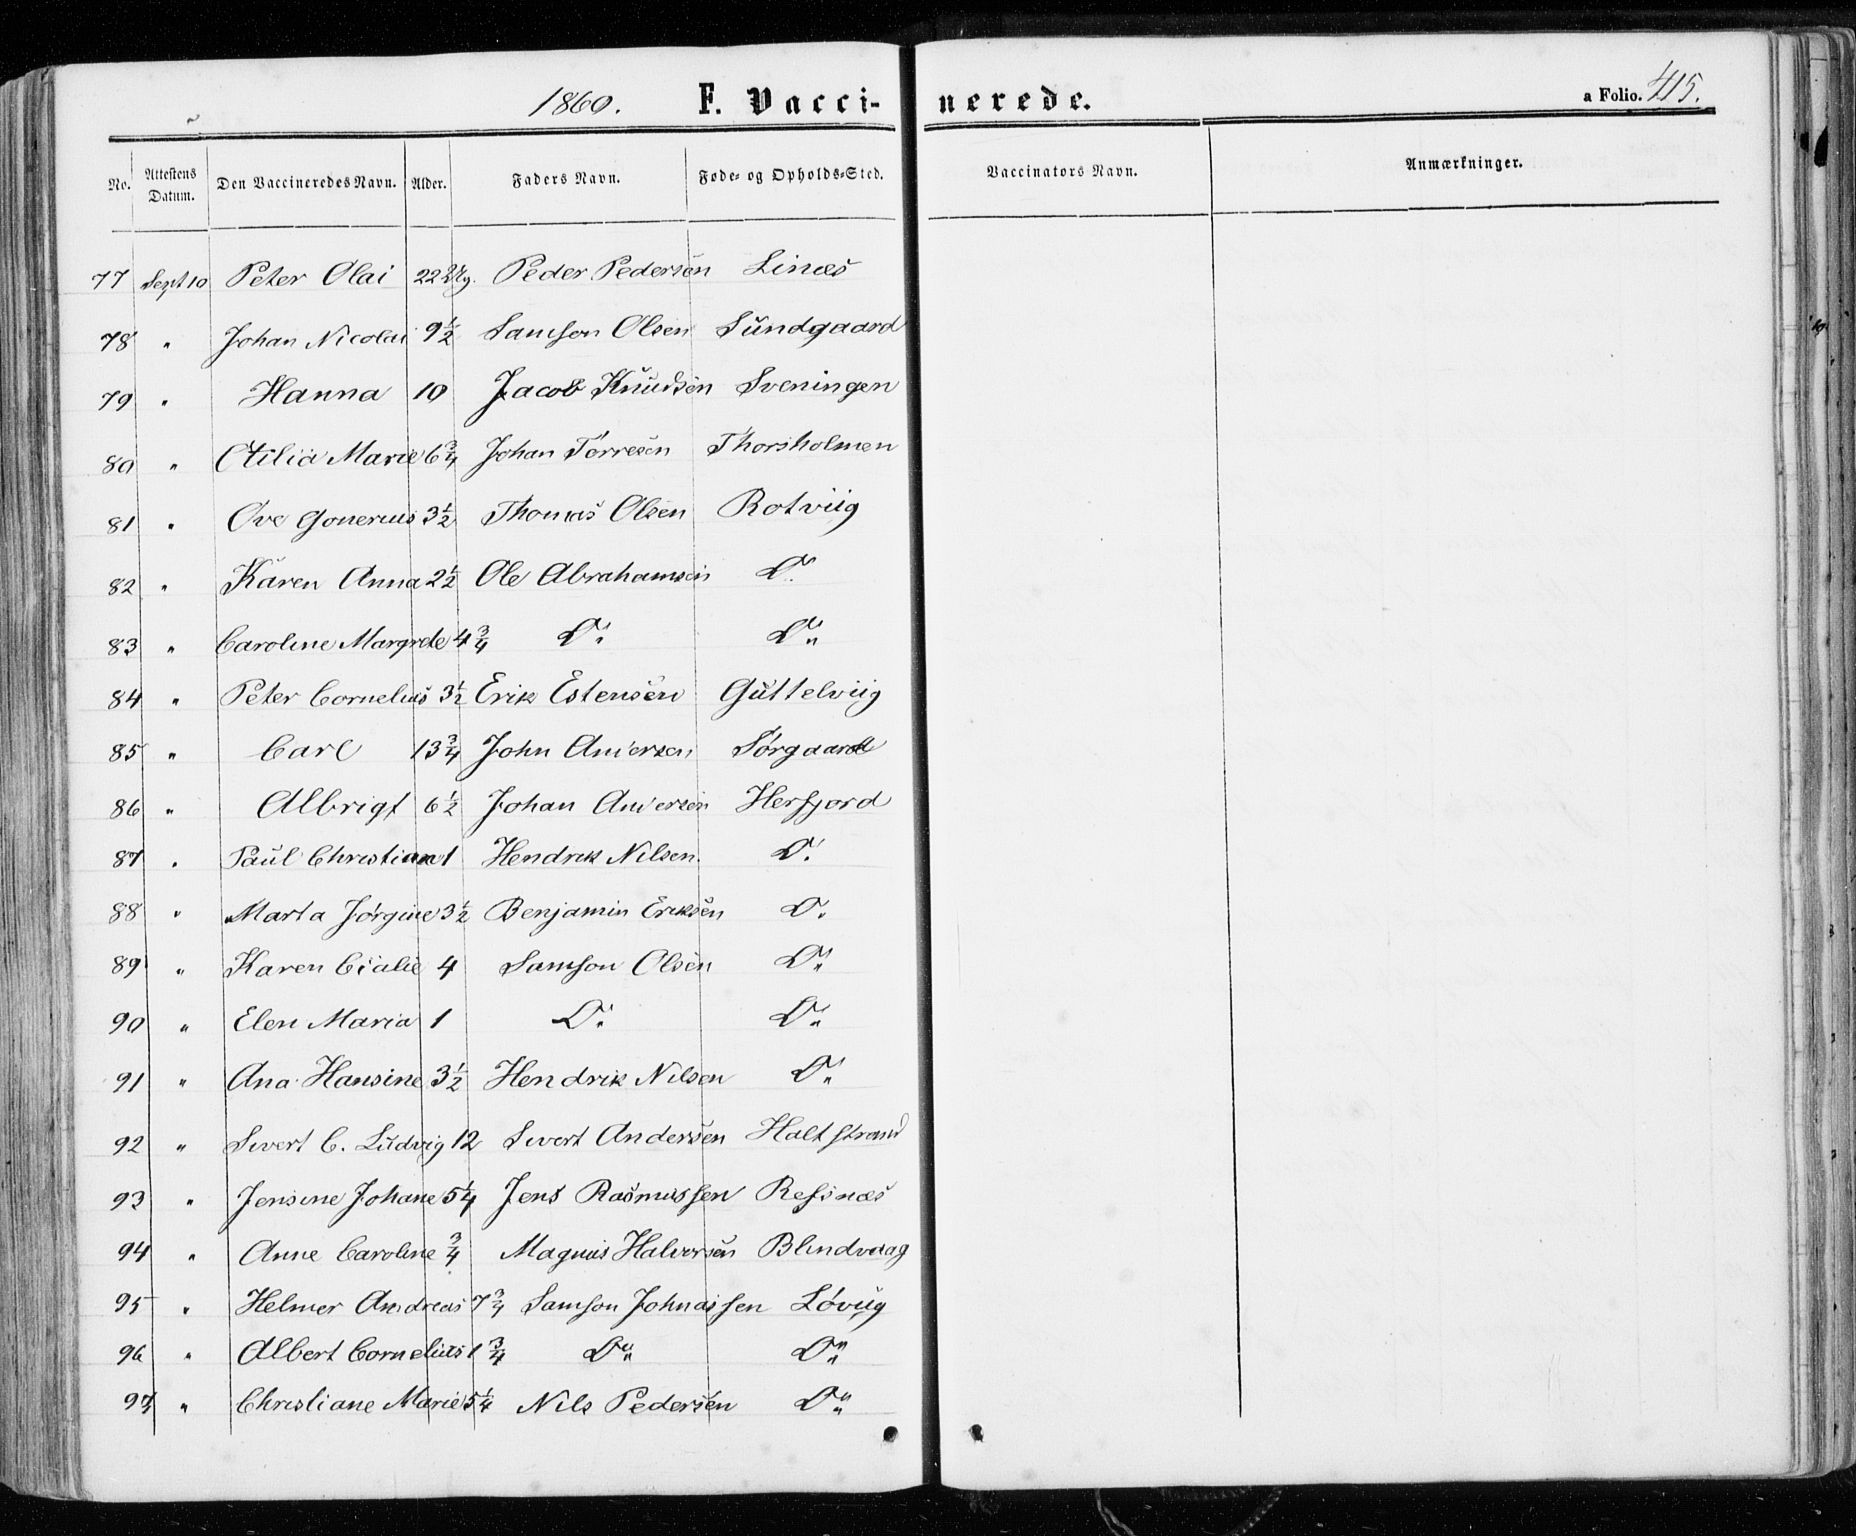 1860. F. Vacci- nerede. a Folio. 415.
No. Attestens Datum. Den Vaccineredes Navn. Alder. Faders Navn. Føde- og Opholds-Sted. Vaccinators Navn. Anmærkninger.
77 Sept 10 Peter Olai 22 Peder Pedersen Linæs
78 " Johan Nicolai 9½ Samson Olsen Sundgaard
79 " Hanna 10 Jacob Knudsen Sveningen
80 " Otilia Marie 6¾ Johan Torresen Thorsholmen
81 " Ove Gonerius 3½ Thomas Olsen Rotviig
82 " Karen Anna 2½ Ole Abrahamsen Do
83 " Caroline Margrete 4¾ Do Do
84 " Peter Cornelius 3½ Erik Estensen Guttelviig
85 " Carl 13¾ John Andersen Sørgaard
86 " Albrigt 6½ Johan Andersen Herfjord
87 " Paul Christian 1 Hendrik Nilsen Do
88 " Marta Jørgine 3½ Benjamin Eriksen Do
89 " Karen 4 Samson Olsen Do
90 " Elen Maria 1 Do Do
91 " Ana Hansine 3½ Hendrik Nilsen Do
92 " Sivert C. Ludvig 12 Sivert Andersen Haltstrand
93 " Jensine Johane 5¼ Jens Rasmussen Refsnæs
94 " Anne Caroline ¾ Magnus Halvorsen Blindvaag
95 " Helmer Andreas 7¾ Samson Johnassen Løviig
96 " Albert Cornelius 1¾ Do Do
97 " Christiane Marie 5¼ Nils Pedersen Do